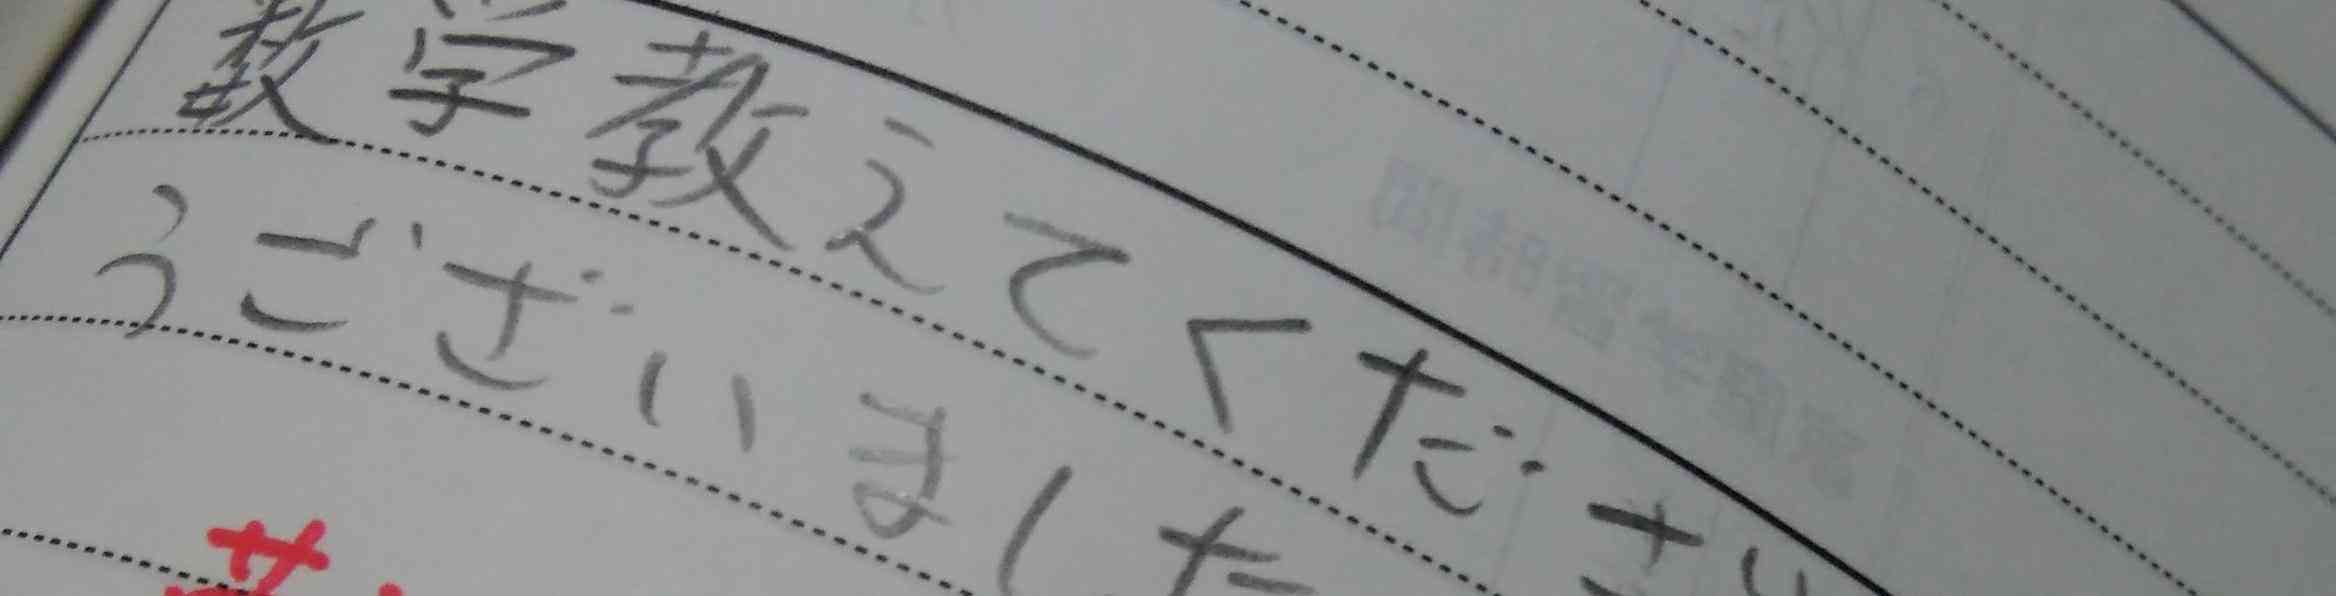 数学教えてくださり
うございました